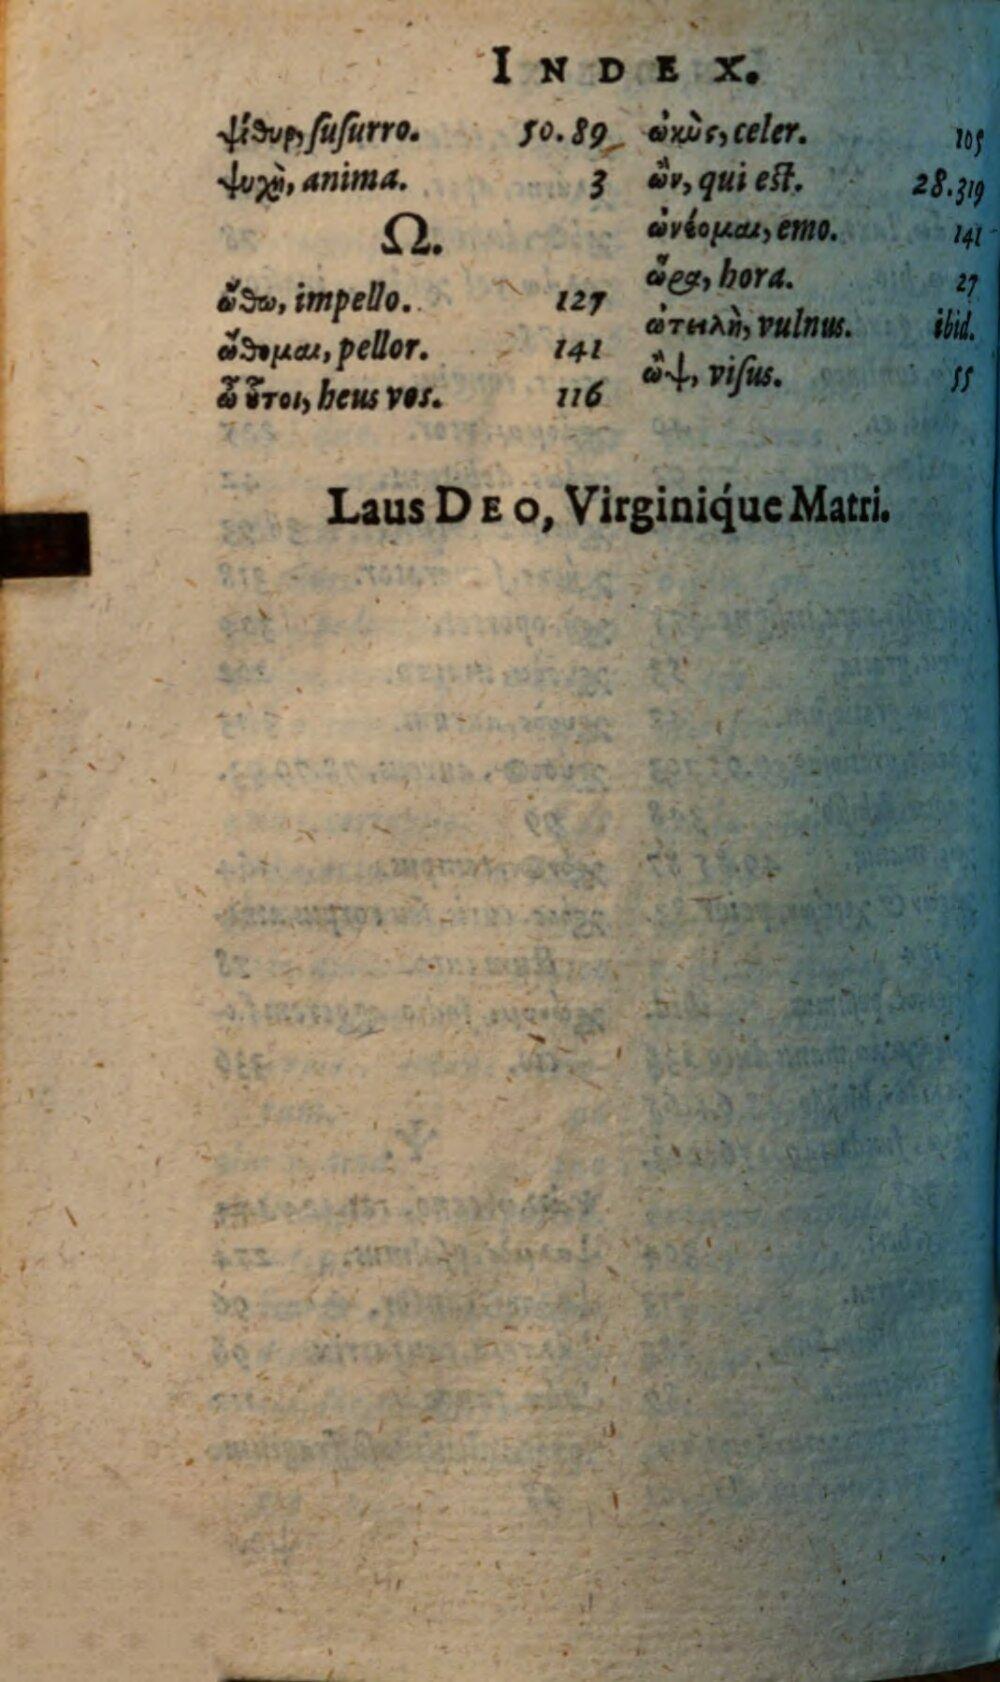 INDEX.
ψίθυρ, ſuſurro. 50.89
ψυχὴ, anima. 3
Ω.
ὤθω, impello. 127
ὤθομαι, pellor. 141
ὦ ὗτοι, heus vos. 116
ὠκὺς, celer. 105
ὢν, qui eſt. 28.319
ὠνέομαι, emo. 141
ὥρα, hora. 27
ὠτειλὴ, vulnus. ibid.
ὢψ, viſus. 55
Laus DEO, Virginiq́ue Matri.